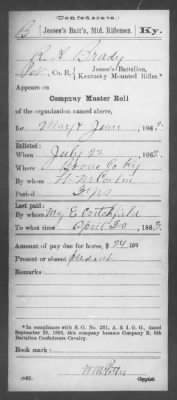 (Confederate.)
B Jessee's Batt'n, Mtd. Riflemen. Ky.
R. A. Brady
Co. B, Jessee's Battalion, Kentucky Mounted Rifles.*
Appears on
Company Muster Roll
of the organization named above,
for May & June, 1863.
Enlisted:
When July 22, 1862.
Where Boone Co Ky
By whom
Period 3 yrs
Last paid:
By whom Maj E. Critchfield
To what time April 30, 1863.
Amount of pay due for horse, $ 24
Present or absent Present
Remarks:
*In compliance with S. O. No. 231, A. & I. G. O., dated
September 28, 1863, this company became Company B, 6th
Battalion Confederate Cavalry.
Book mark:
(642)
Copyist.